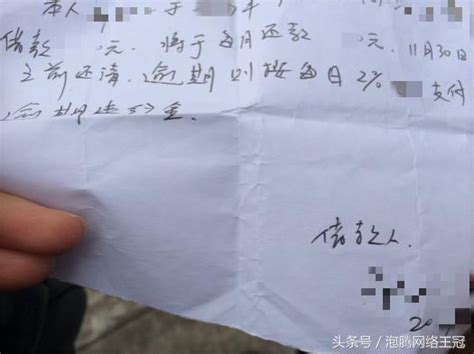 本人 于
借款 0元. 将于每月还款 0元. 11月30日
之前还清. 逾期则按每日2% 支付
借款人.
20
头条号/泡腾网络王冠